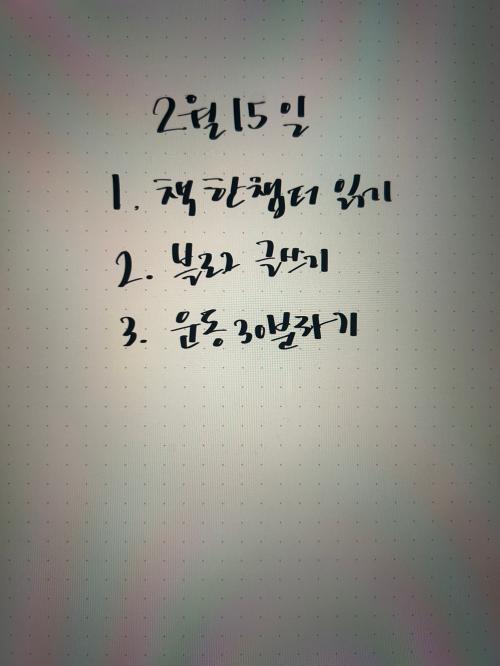 2월 15일
1. 책 한챕터 읽기
2. 블로그 글쓰기
3. 운동 30분하기